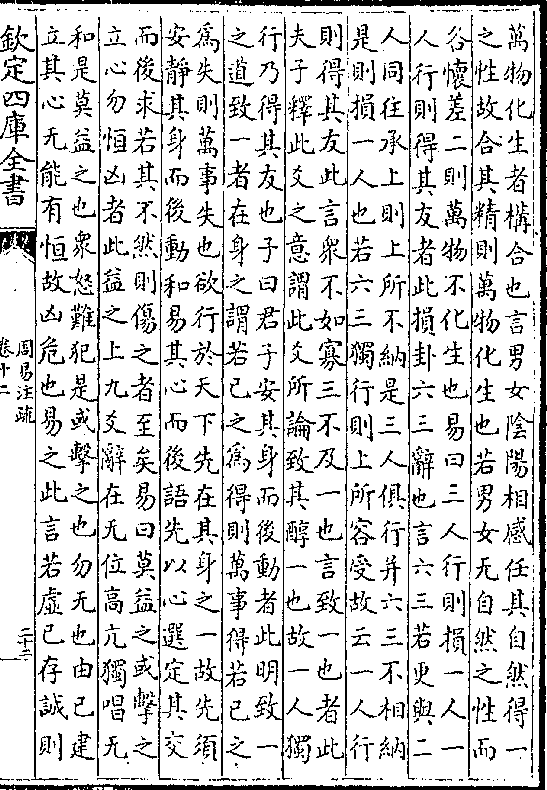 萬物化生者構合也言男女陰陽相感任其自然得一
之性故合其精則萬物化生也若男女无自然之性而
各懷差二則萬物不化生也易曰三人行則損一人一
人行則得其友者此損卦六三辭也言六三若更與二
人同往承上則上所不納是三人俱行并六三不相納
是則損一人也若六三獨行則上所容受故云一人行
則得其友此言衆不如寡三不及一也言致一也者此
夫子釋此爻之意謂此爻所論致其醇一也故一人獨
行乃得其友也子曰君子安其身而後動者此明致一
之道致一者在身之謂若己之為得則萬事得若己之
為失則萬事失也欲行於天下先在其身之一故先須
安靜其身而後動和易其心而後語先以心選定其交
而後求若其不然則傷之者至矣易曰莫益之或擊之
立心勿恒凶者此益之上九爻辭在无位高亢獨唱无
和是莫益之也衆怒難犯是或擊之也勿无也由己建
立其心无能有恒故凶危也易之此言若虛己存誠則
欽定四庫全書
周易注疏
卷十二
二十三